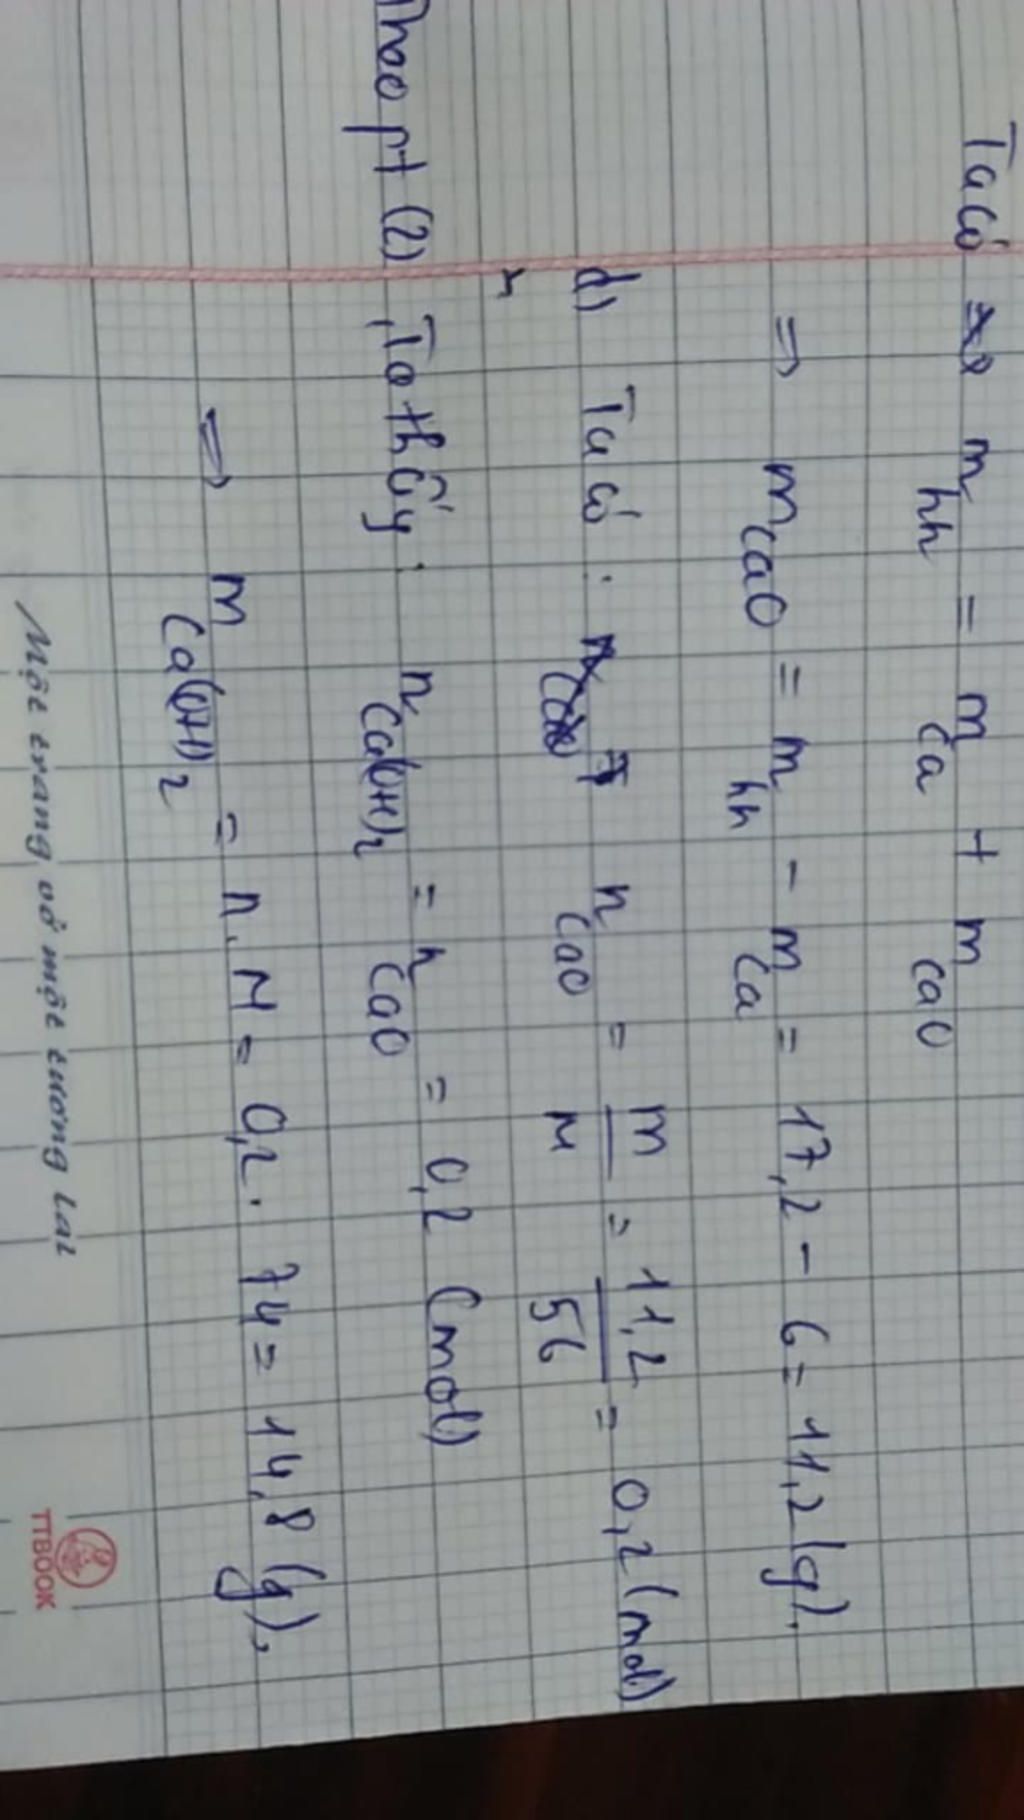 Ta có m hh = m Ca + m CaO
=> m CaO = m hh - m Ca = 17,2 - 6 = 11,2 (g).
d) Ta có : n CaO = m/M = 11,2/56 = 0,2 (mol)
Theo pt (2), Ta thấy : n Ca(OH)2 = n CaO = 0,2 (mol)
=> m Ca(OH)2 = n. M = 0,2 . 74 = 14,8 (g).
Một trang vở một tương lai
TTBOOK